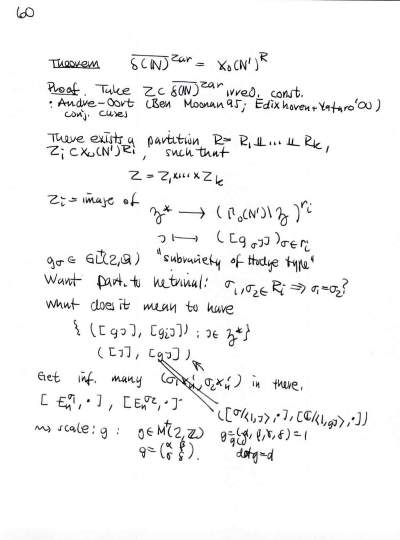 60
Theorem \overline{δ(N)}^{Zar} = X₀(N')^R
Proof. Take Z ⊂ \overline{δ(N)}^{zar} irred. const.
· Andre-Oort (Ben Moonan 95; Edixhoven + Yafaev '00)
conj. cases
There exists a partition R = R₁ ⊔ ... ⊔ R_k,
Z_i ⊂ X₀(N')^{R_i}, such that
Z = Z₁ x ... x Z_k
Z_i = image of 𝔥* → (Γ₀(N')\𝔥)^{r_i}
τ ↦ ([g_σ τ])_{σ∈r_i}
g_σ ∈ GL⁺(2,Q) "subvariety of Hodge type"
Want part. to be trivial: σ₁,σ₂ ∈ R_i ⇒ σ₁=σ₂?
What does it mean to have
{ ([gτ], [g_iτ]) : τ ∈ 𝔥* }
([τ], [gτ])
Get inf. many (σ₁x_n', σ₂x_n') in there,
[E_n^{σ₁}, ·], [E_n^{σ₂}, ·]
([ℂ/⟨1,τ⟩, ·], [ℂ/⟨1,gτ⟩, ·])
⇝ scale: g : g ∈ M⁺(2,Z) gcd(α,β,γ,δ) = 1
g = (α β
γ δ). det g = d